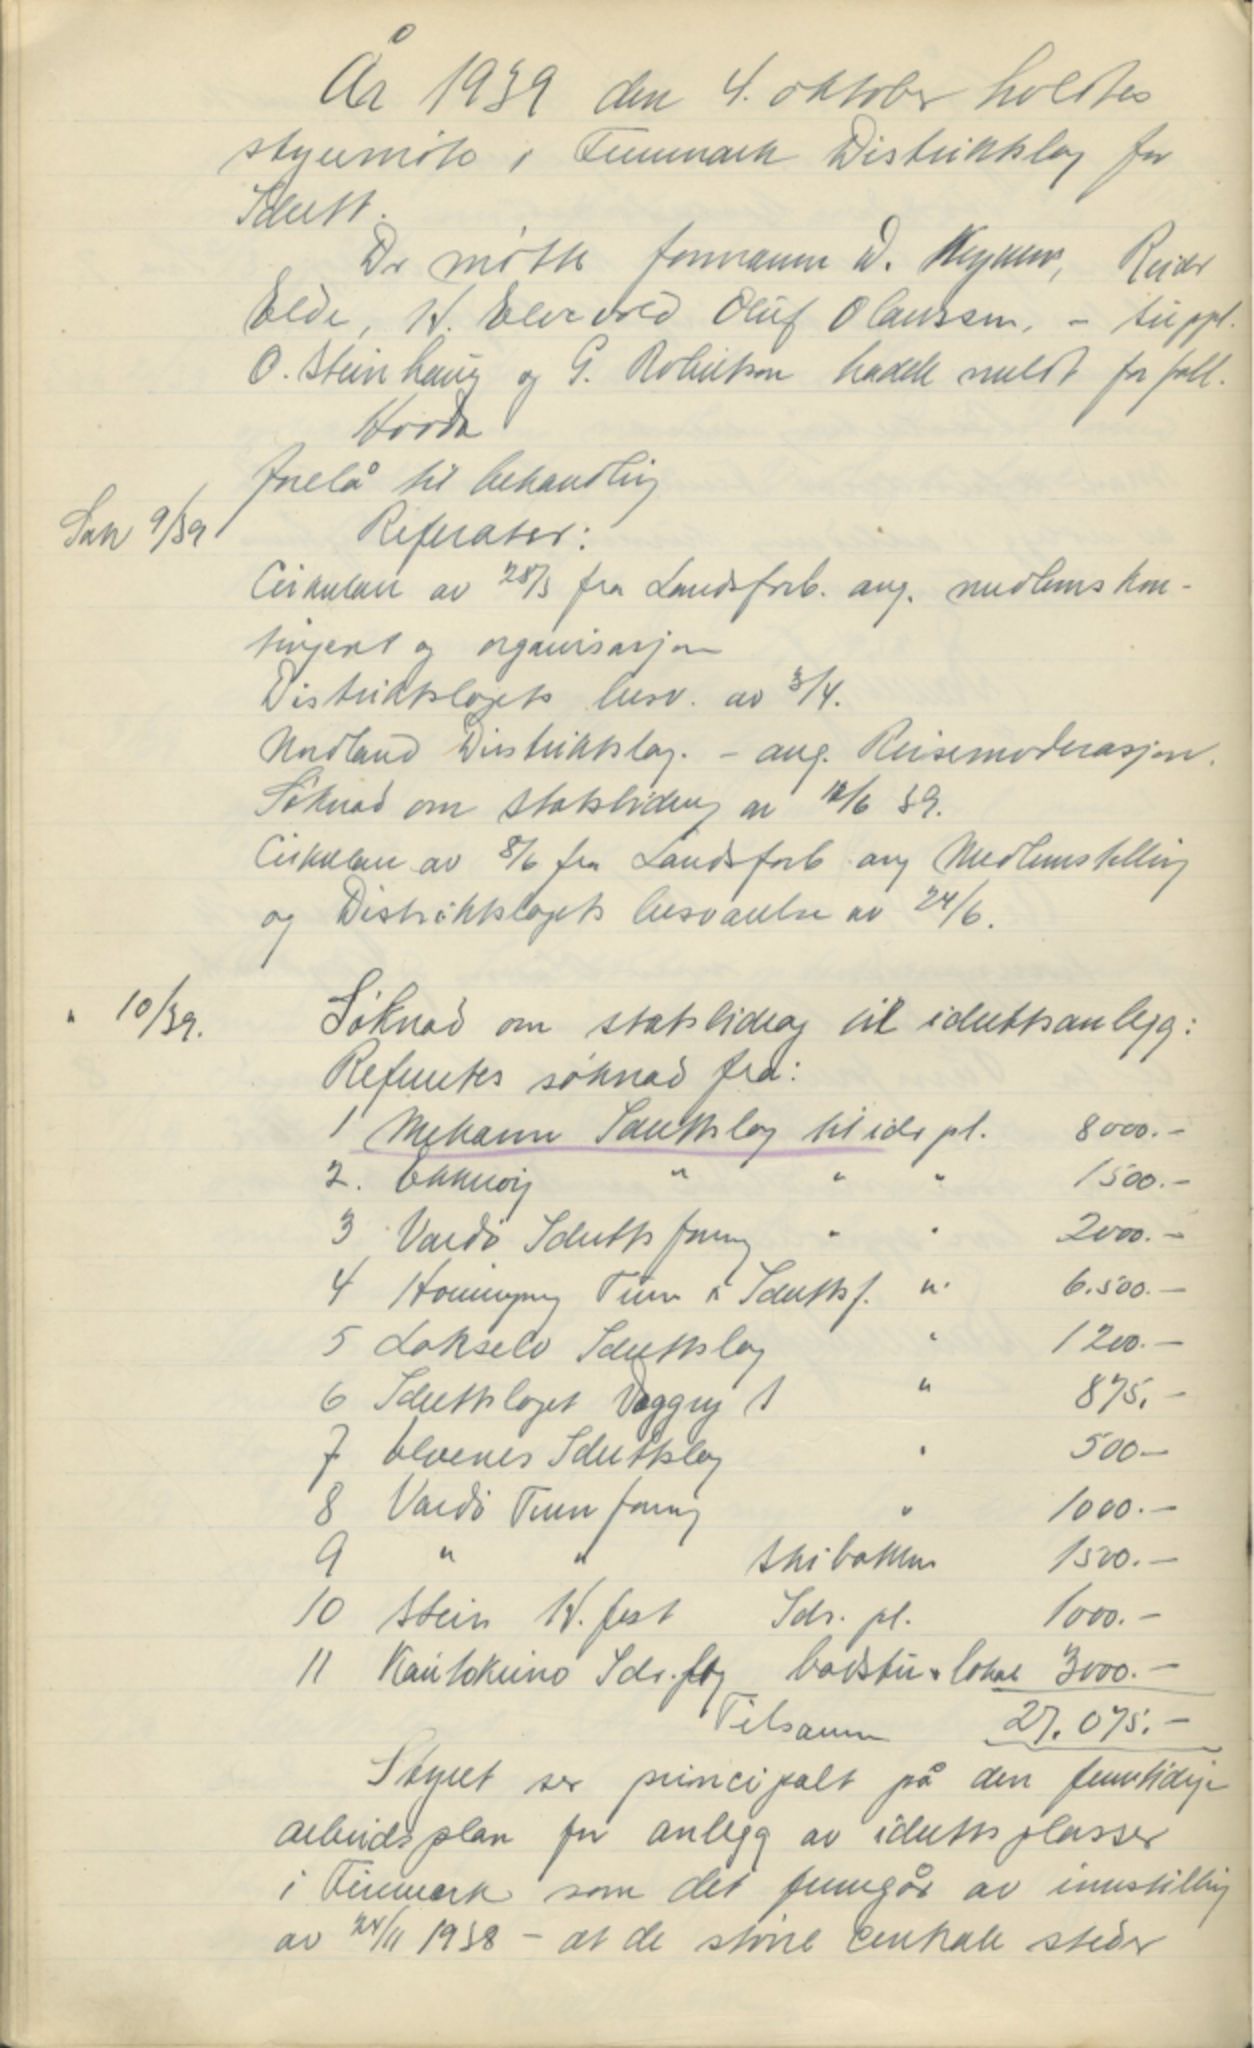 År 1939 den 4. oktober holdtes
styremöte i Finnmark Distriktslag for
Idrett.
Der mötte formann D. Reidar
Elde, H. Elvevold Oluf Olaussen, - suppl.
O. Steinhaug og G. Robertson hadde meldt forfall.
forelå til behandling
Sak 9/39 Referater:
Cirkulære av 28/3 fra Landsforb. ang. medlemskon-
tingent og organisasjon
Distriktslagets besv. av 3/4.
Nordland Distriktslag. - ang. Reisemoderasjon.
Söknad om statsbidrag av 12/6 39.
Cirkulære av 8/6 fra Landsforb ang Medlemstelling
og Distriktslagets besvarelse av 24/6.
" 10/39. Söknad om statsbidrag til idrettsanlegg:
Refertes söknad fra:
1 Mehamn Idrettslag til idr pl. 8000.-
2. Ekkeröy " " " 1500.-
3 Vardö Idrettsforng " " 2000.-
4 Honningsvåg Turn & Idrettsf. " 6.500.-
5 Lakselv Idrettslag " 1200.-
6 Idrettslaget Vaggeg " 875.-
7 Elvenes Idrettslag " 500-
8 Vardö Turnforng " 1000.-
9 " " Skibakken 1500.-
10 Stein H.fest Idr. pl. 1000.-
11 Kautokeino Idr.lag badstu & lokal 3000.-
Tilsamn 27.075.-
Styret ser principalt på den fremtidige
arbeidsplan for anlegg av idrettsplasser
i Finnmark som det fremgår av innstilling
av 24/11 1938 - at de större centrale steder